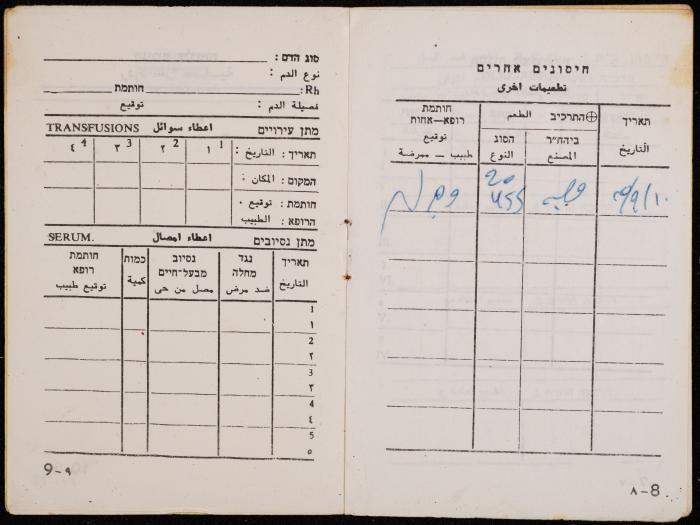 חיסונים אחרים
تطعيمات اخرى
תאריך
التاريخ
התרכיב الطعم
ביהח״ר
المصنع
הסוג
النوع
חותמת
רופא—אחות
توقيع
طبيب — ممرضة
٨-8
סוג הדם:
نوع الدم :
Rh: חותמת
فصيلة الدم : توقيع
מתן עירויים اعطاء سوائل TRANSFUSIONS
תאריך: التاريخ : 1 ١ 2 ٢ 3 ٣ 4 ٤
המקום: المكان :
חותמת: توقيع .
הרופא: الطبيب
מתן נסיובים اعطاء امصال SERUM.
תאריך
التاريخ
נגד
מחלה
ضد مرض
נסיוב
מבעל-חיים
مصل من حى
כמות
كمية
חותמת
רופא
توقيع طبيب
1
١
2
٢
3
٣
4
٤
5
٥
9-٩